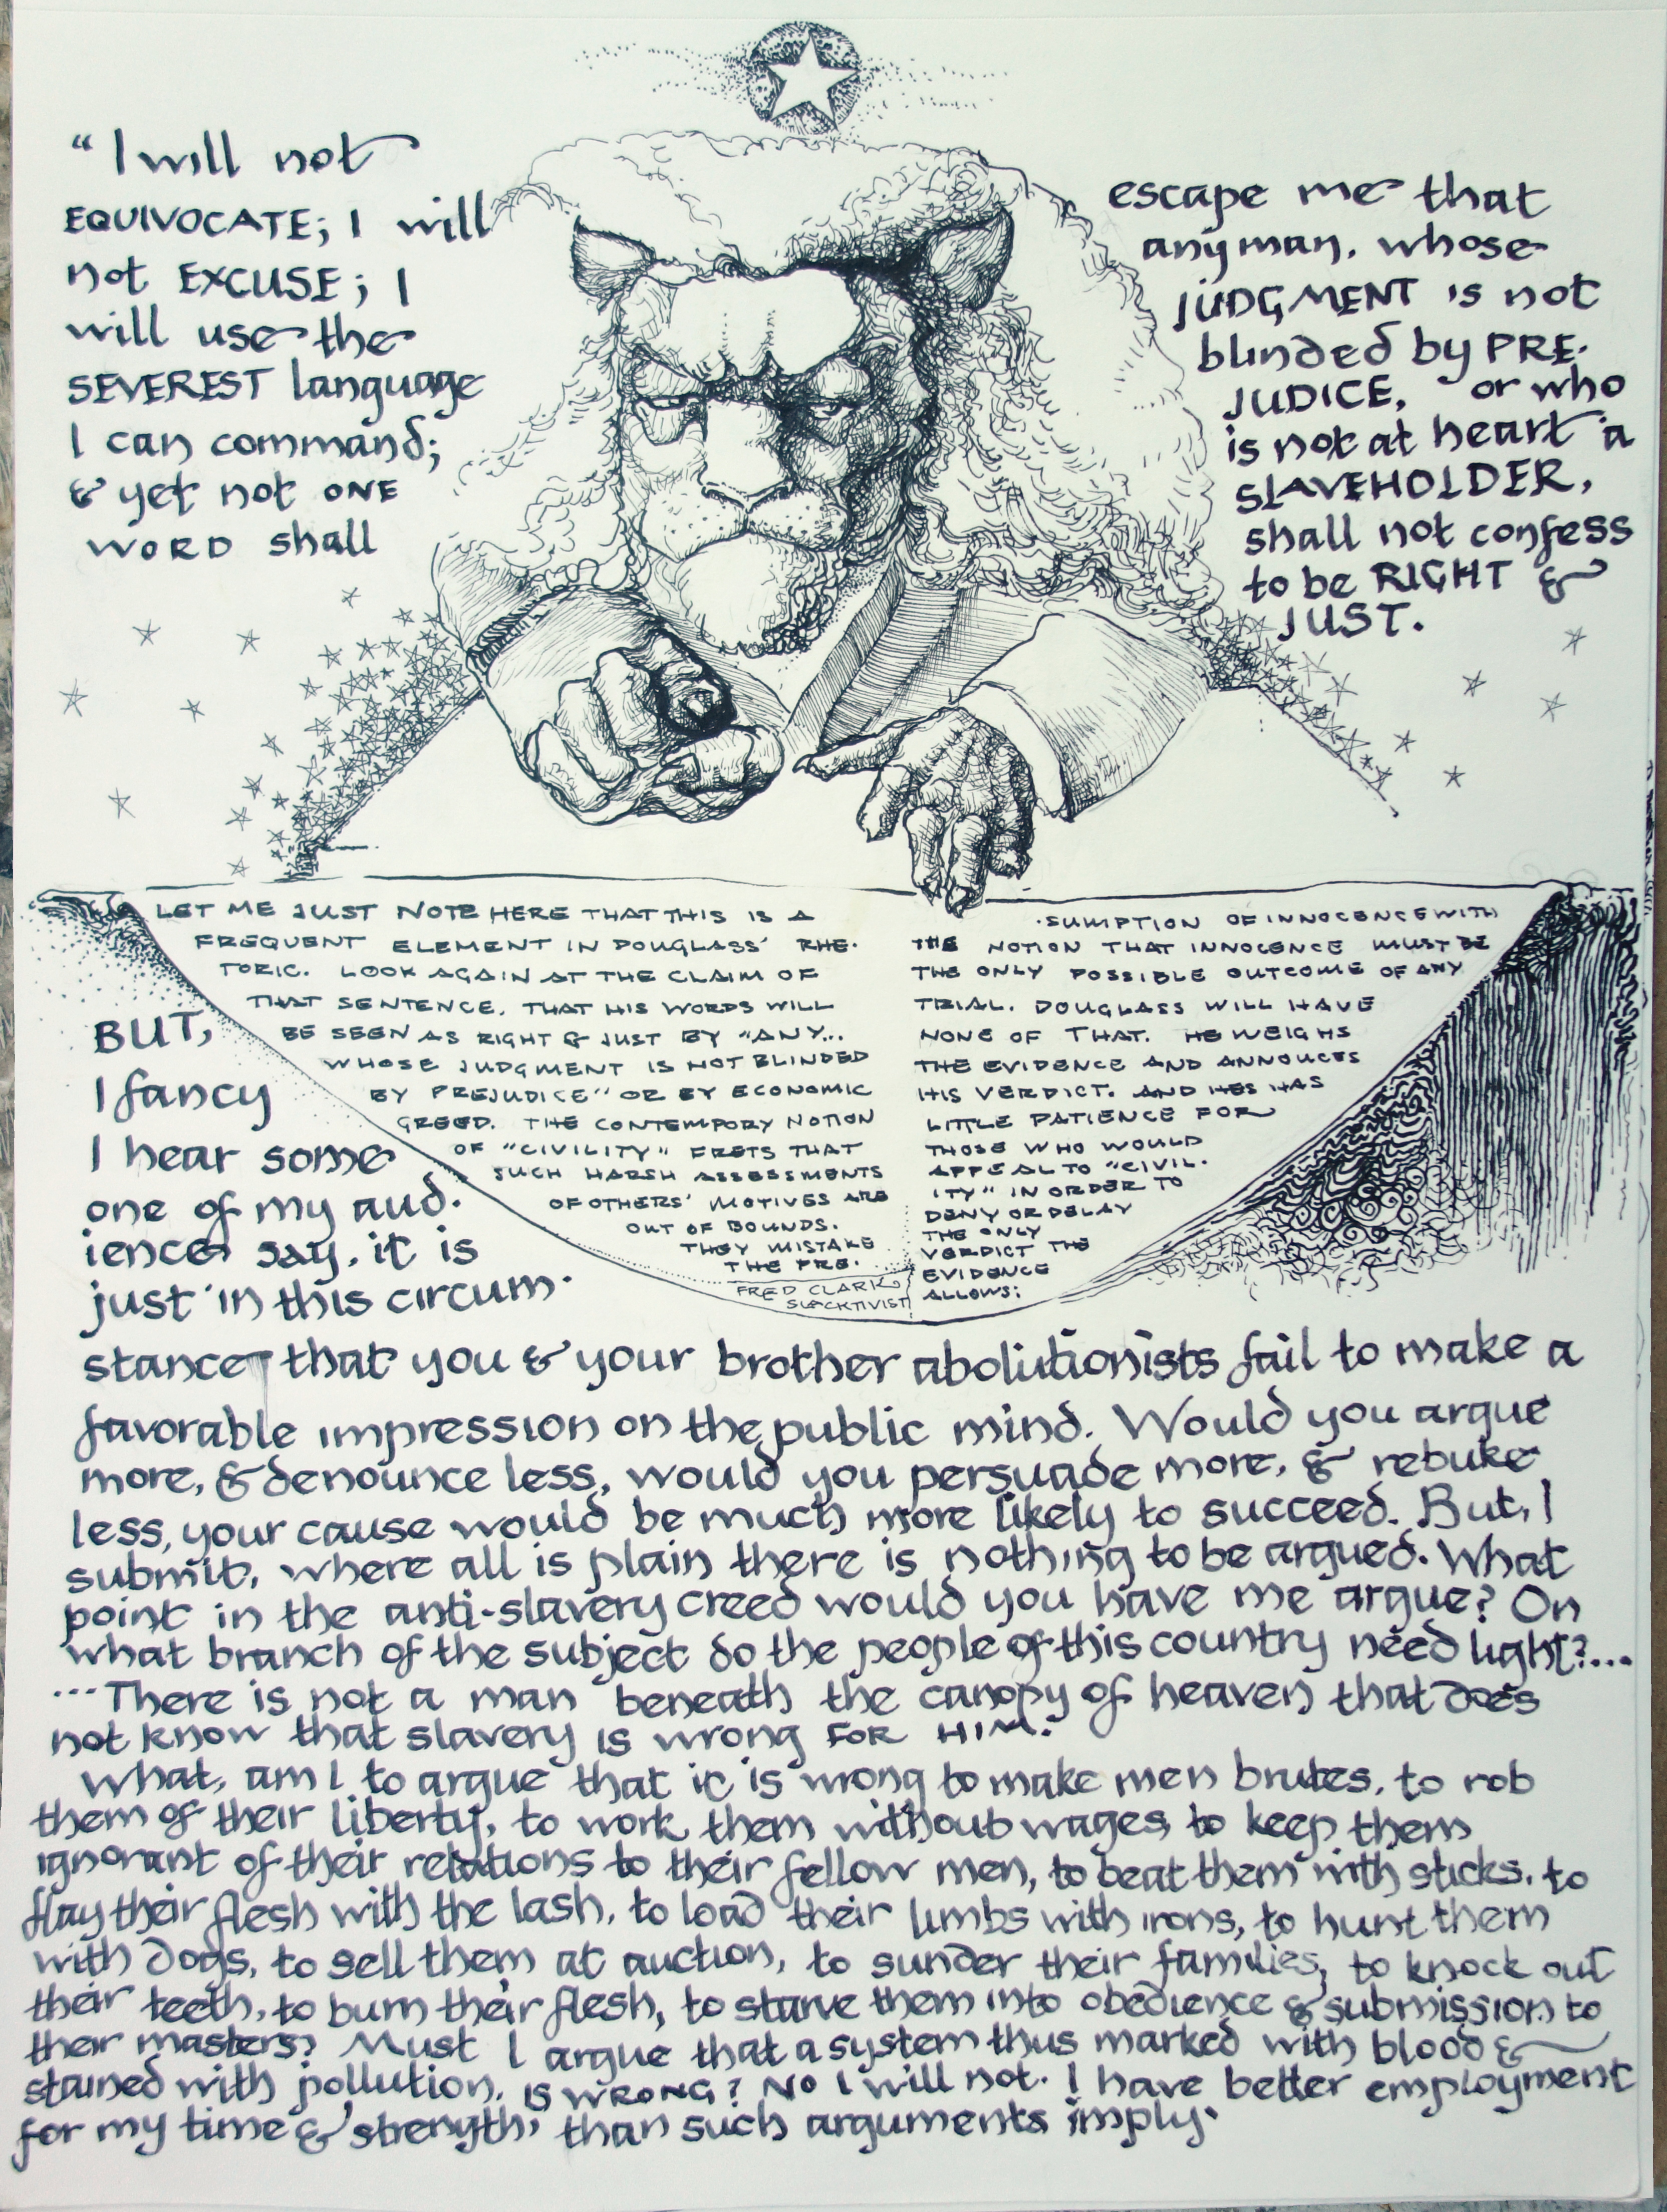 “I will not
EQUIVOCATE; I will
not EXCUSE; I
will use the
SEVEREST language
I can command;
& yet not ONE
WORD shall
escape me that
any man, whose
JUDGMENT is not
blinded by PRE-
JUDICE, or who
is not at heart a
SLAVEHOLDER,
shall not confess
to be RIGHT &
JUST.
LET ME JUST NOTE HERE THAT THIS IS A
FREQUENT ELEMENT IN DOUGLASS' RHE-
TORIC. LOOK AGAIN AT THE CLAIM OF
THAT SENTENCE, THAT HIS WORDS WILL
BE SEEN AS RIGHT & JUST BY "ANY...
WHOSE JUDGMENT IS NOT BLINDED
BY PREJUDICE" OR BY ECONOMIC
GREED. THE CONTEMPORY NOTION
OF "CIVILITY" FRETS THAT
SUCH HARSH ASSESSMENTS
OF OTHERS' MOTIVES ARE
OUT OF BOUNDS.
THEY MISTAKE
THE PRE-
·SUMPTION OF INNOCENCE WITH
THE NOTION THAT INNOCENCE MUST BE
THE ONLY POSSIBLE OUTCOME OF ANY
TRIAL. DOUGLASS WILL HAVE
NONE OF THAT. HE WEIGHS
THE EVIDENCE AND ANNOUCES
HIS VERDICT. AND HES HAS
LITTLE PATIENCE FOR
THOSE WHO WOULD
APPEAL TO "CIVIL-
ITY" IN ORDER TO
DENY OR DELAY
THE ONLY
VERDICT THE
EVIDENCE
ALLOWS:
FRED CLARK,
SLACKTIVIST
BUT,
I fancy
I hear some
one of my aud-
ience say, it is
just in this circum-
stance that you & your brother abolutionists fail to make a
favorable impression on the public mind. Would you argue
more, & denounce less, would you persuade more, & rebuke
less, your cause would be much more likely to succeed. But, I
submit, where all is plain there is nothing to be argued. What
point in the anti-slavery creed would you have me argue? On
what branch of the subject do the people of this country need light?...
...There is not a man beneath the canopy of heaven that does
not know that slavery is wrong FOR HIM.
What, am I to argue that it is wrong to make men brutes, to rob
them of their liberty, to work them without wages, to keep them
ignorant of their relations to their fellow men, to beat them with sticks, to
flay their flesh with the lash, to load their limbs with irons, to hunt them
with dogs, to sell them at auction, to sunder their families, to knock out
their teeth, to burn their flesh, to starve them into obedience & submission to
their masters? Must I argue that a system thus marked with blood &
stained with pollution, IS WRONG? No I will not. I have better employment
for my time & strength, than such arguments imply.